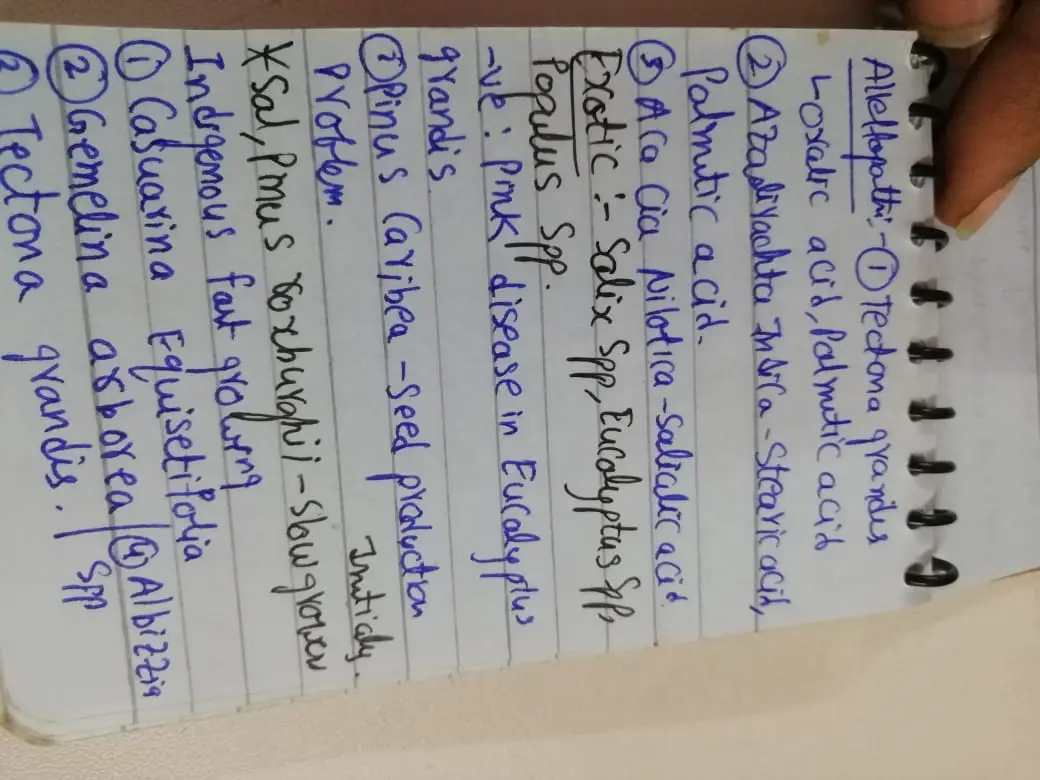 Allelopathi:- ① Tectona grandis
Loxalic acid, Palmitic acid
② Azadirachta Indica - Stearic acid,
Palmitic acid.
③ Aca Cia Nilotica - Salicalic acid.
Exotic :- Salix Spp, Eucalyptus Spp,
Populus Spp.
-ve: Pink disease in Eucalyptus
grandis
② Pinus Caribea - seed production
Problem.
Initialy.
*Sal, Pinus roxhurghii - slow grower
Indegenous fast growing
① Casuarina Equisetifolia
② Gemelina arborea/ ④ Albizzia
Spp
② Tectona grandis.